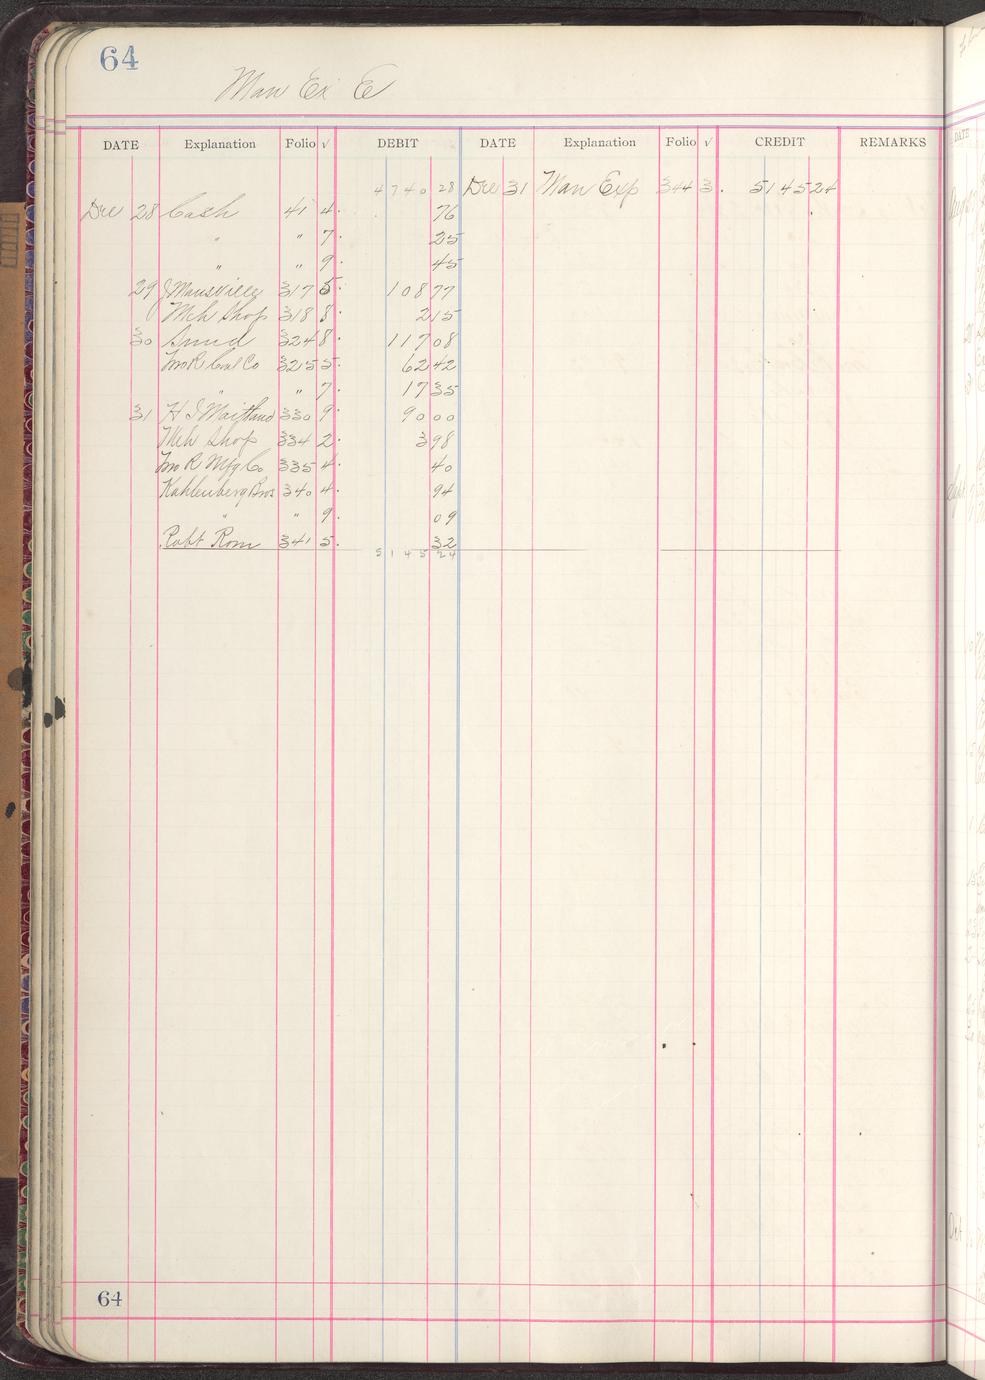 64
Man Ex E
DATE Explanation Folio √ DEBIT DATE Explanation Folio √ CREDIT REMARKS
4740 28 Dec 31 Man Exp 344 3. 5145 24
Dec 28 Cash 41 4. 76
" " 7. 25
" " 9. 45
29 317 5. 108 77
Mch Shop 318 8. 2 15
30 324 8. 117 08
Jno R Coal Co 325 5. 62 42
" " 7. 17 35
31 H S Maitland 330 9. 90 00
Mch Shop 334 2. 3 98
Jno R Mfg Co 335 4. 40
Kahlenberg Bros 340 4. 94
" " 9. 09
Robt Rom 341 5. 32
5145 24
64